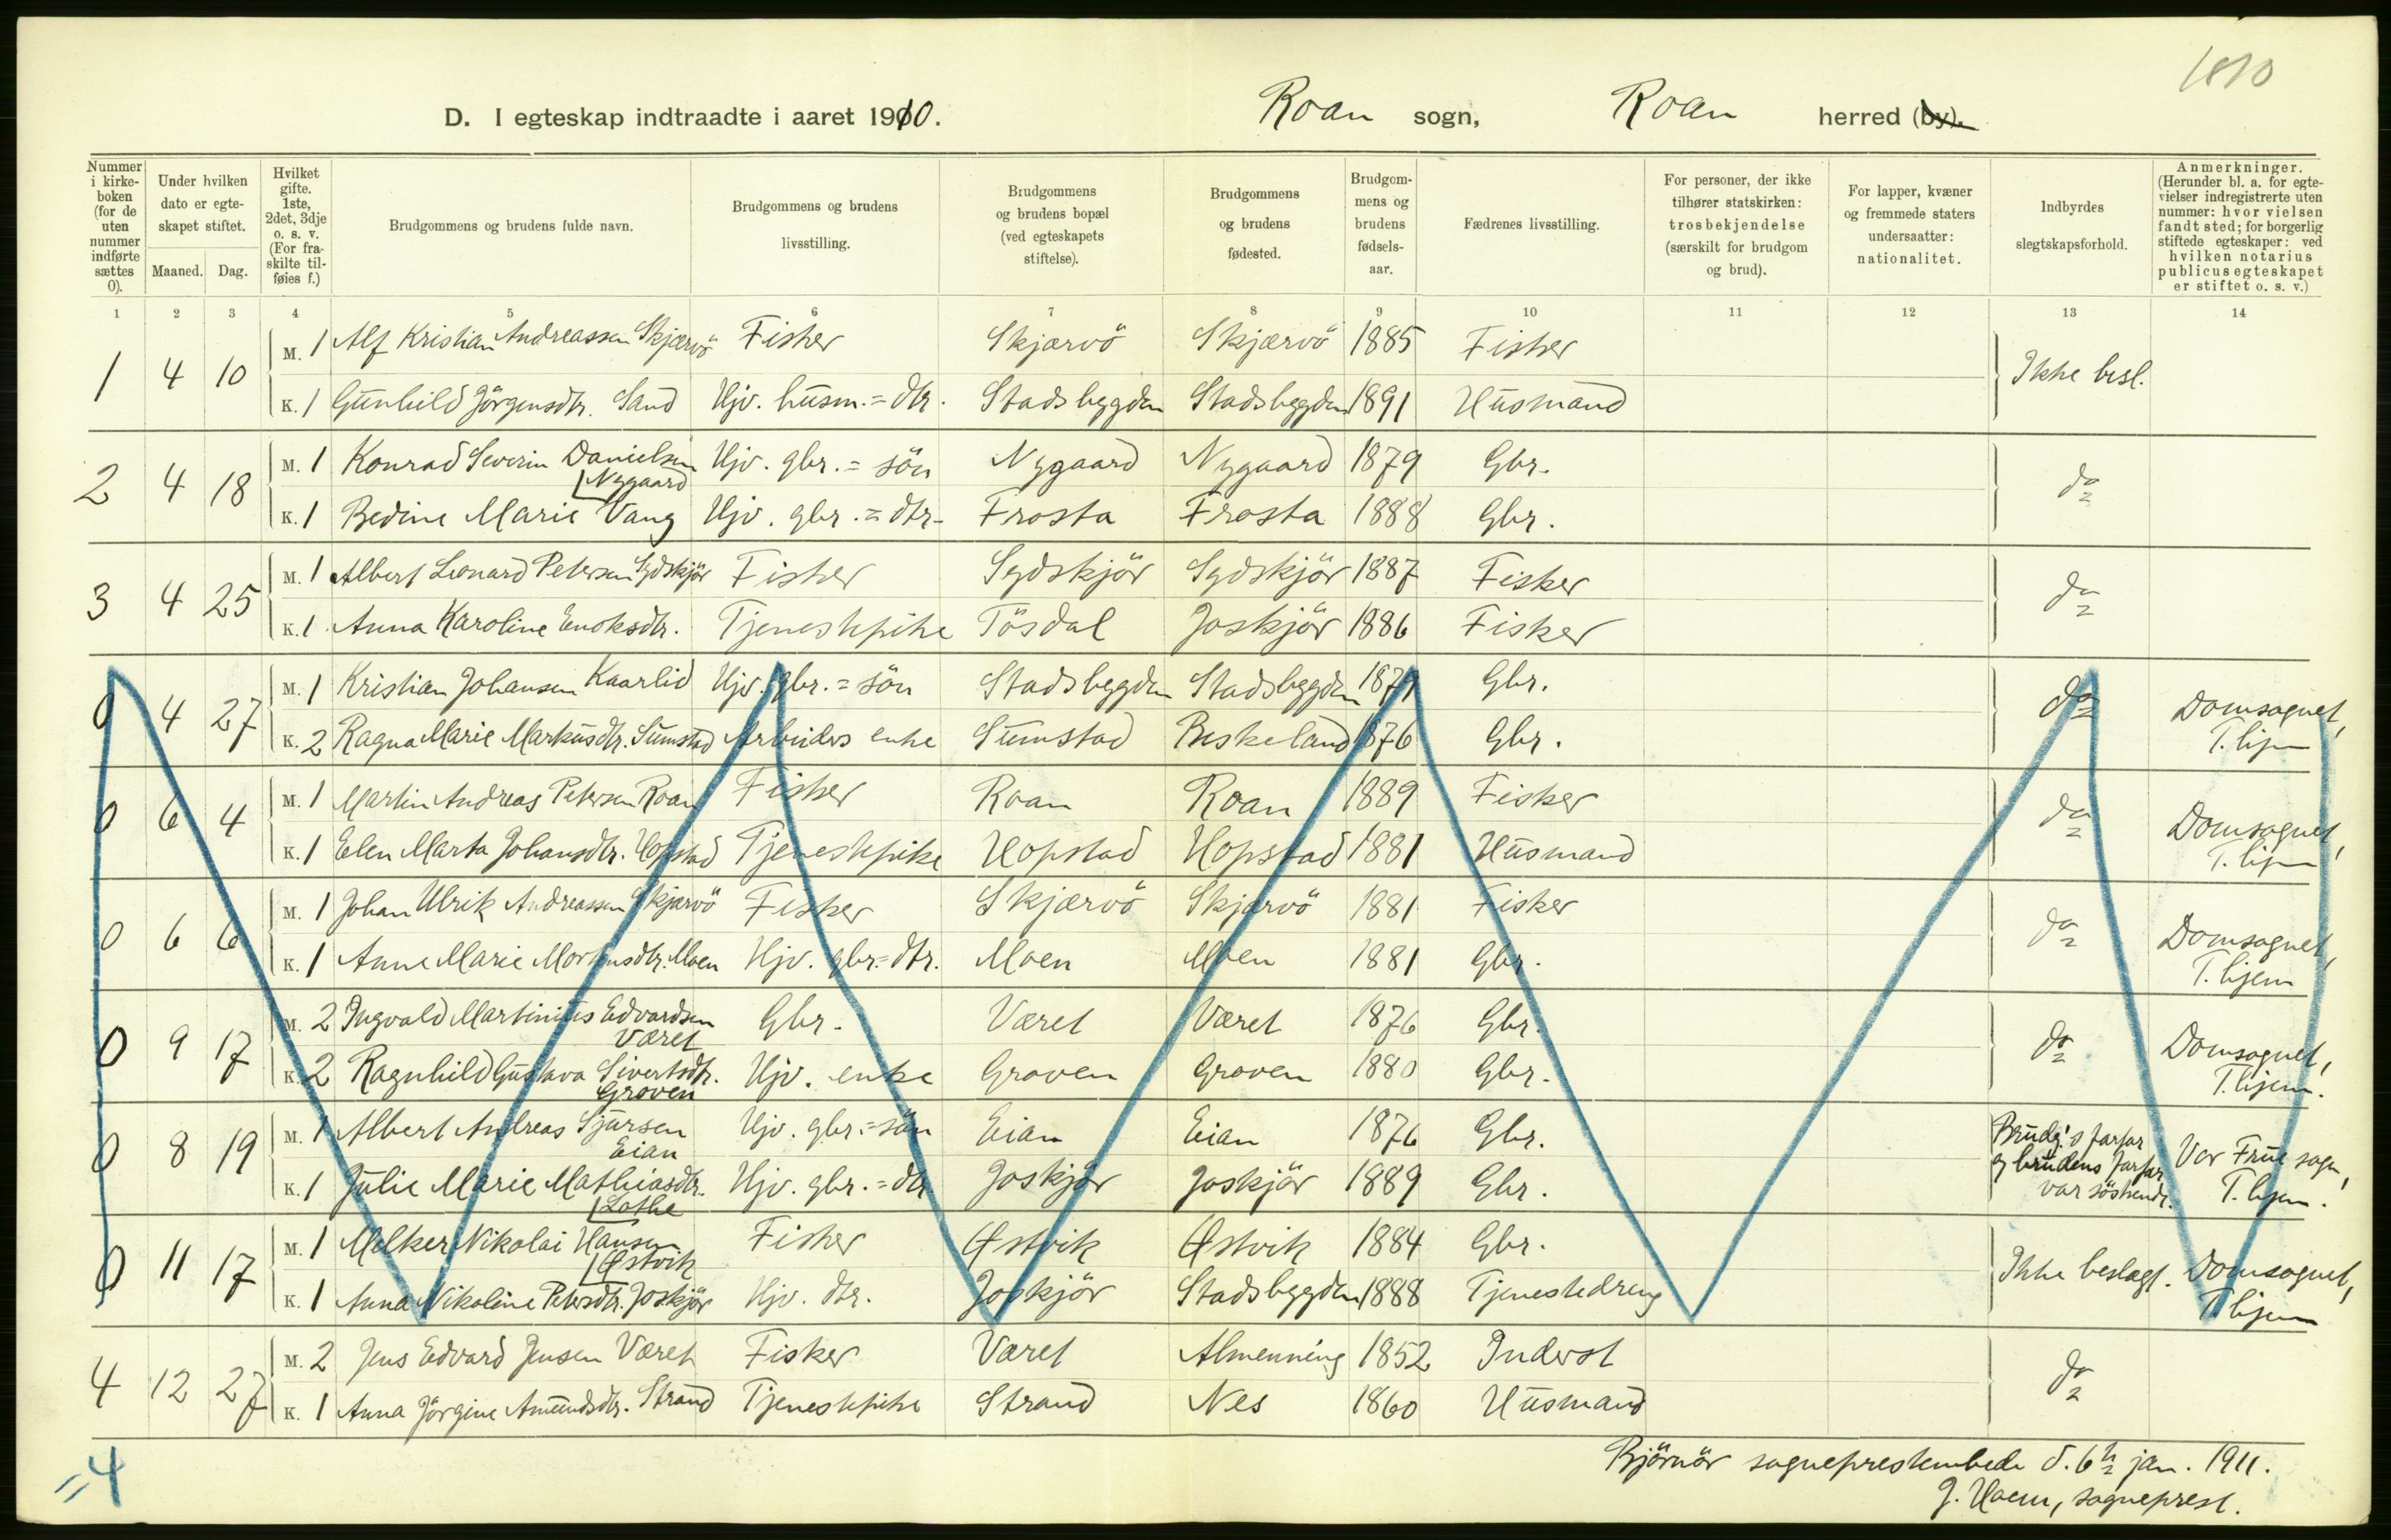 1810
D. I egteskap indtraadte i aaret 1910. Roan sogn, Roan herred (by).
Nummer i kirke-boken (for de uten nummer indførte sættes 0). Under hvilken dato er egte-skapet stiftet. Maaned. Dag. Hvilket gifte. 1ste, 2det, 3dje o. s. v. (For fra-skilte til-føies f.) Brudgommens og brudens fulde navn. Brudgommens og brudens livsstilling. Brudgommens og brudens bopæl (ved egteskapets stiftelse). Brudgommens og brudens fødested. Brudgom-mens og brudens fødsels-aar. Fædrenes livsstilling. For personer, der ikke tilhører statskirken: trosbekjendelse (særskilt for brudgom og brud). For lapper, kvæner og fremmede staters undersaatter: nationalitet. Indbyrdes slegtskapsforhold. Anmerkninger. (Herunder bl. a. for egte-vielser indregistrerte uten nummer: hvor vielsen fandt sted; for borgerlig stiftede egteskaper: ved hvilken notarius publicus egteskapet er stiftet o. s. v.)
1 2 3 4 5 6 7 8 9 10 11 12 13 14
1 4 10 M. 1 Alf Kristian Andreassen Skjærvö Fisker Skjærvö Skjærvö 1885 Fisker Ikke besl.
K. 1 Gunhild Jörgensdtr. Sand Hjv. husm.=dtr. Stadsbygden Stadsbygden 1891 Husmand
2 4 18 M. 1 Konrad Severin Danielsen Nygaard Hjv. gbr.=sön Nygaard Nygaard 1879 Gbr. do
K. 1 Bedine Marie Vang Hjv. gbr.=dtr. Frosta Frosta 1888 Gbr.
3 4 25 M. 1 Albert Leonard Petersen Sydskjör Fisker Sydskjör Sydskjör 1887 Fisker do
K. 1 Anna Karoline Enoksdtr. Tjenestepike Tösdal Joskjör 1886 Fisker
0 4 27 M. 1 Kristian Johansen Kaarlid Hjv. gbr.=sön Stadsbygden Stadsbygden 1879 Gbr. do Domsognet, T.hjem
K. 2 Ragna Marie Markusdtr. Sumstad Arbeiders enke Sumstad Beskeland 1876 Gbr.
0 6 4 M. 1 Martin Andreas Petersen Roan Fisker Roan Roan 1889 Fisker do Domsognet, T.hjem
K. 1 Elen Marta Johansdtr. Hopstad Tjenestepike Hopstad Hopstad 1881 Husmand
0 6 6 M. 1 Johan Ulrik Andreassen Skjærvö Fisker Skjærvö Skjærvö 1881 Fisker do Domsognet, T.hjem
K. 1 Anne Marie Mortensdtr. Moen Hjv. gbr.=dtr. Moen Moen 1881 Gbr.
0 9 17 M. 2 Ingvald Martinius Edvardsen Været Gbr. Været Været 1876 Gbr. do Domsognet, T.hjem.
K. 2 Ragnhild Gustava Sivertsdtr. Groven Hjv. enke Groven Groven 1880 Gbr.
0 8 19 M. 1 Albert Andreas Sjursen Eian Hjv. gbr.=sön Eian Eian 1876 Gbr. Brudg.'s farfar og brudens farfar var söskende. Vor Frue sogn, T.hjem.
K. 1 Julie Marie Mathiasdtr. Lothe Hjv. gbr.=dtr. Joskjör Joskjör 1889 Gbr.
0 11 17 M. 1 Melker Nikolai Hansen Østvik Fisker Østvik Østvik 1884 Gbr. Ikke beslegt. Domsognet, T.hjem
K. 1 Anna Nikoline Petersdtr. Joskjör Hjv. dtr. Joskjör Stadsbygden 1888 Tjenestedreng
4 12 27 M. 2 Jens Edvard Jensen Været Fisker Været Almenning 1852 Inderst do
K. 1 Anna Jörgine Amundsdtr. Strand Tjenestepike Strand Nes 1860 Husmand
=4
Björnör sogneprestembede d. 6te jan. 1911.
J. Hoem, sogneprest.